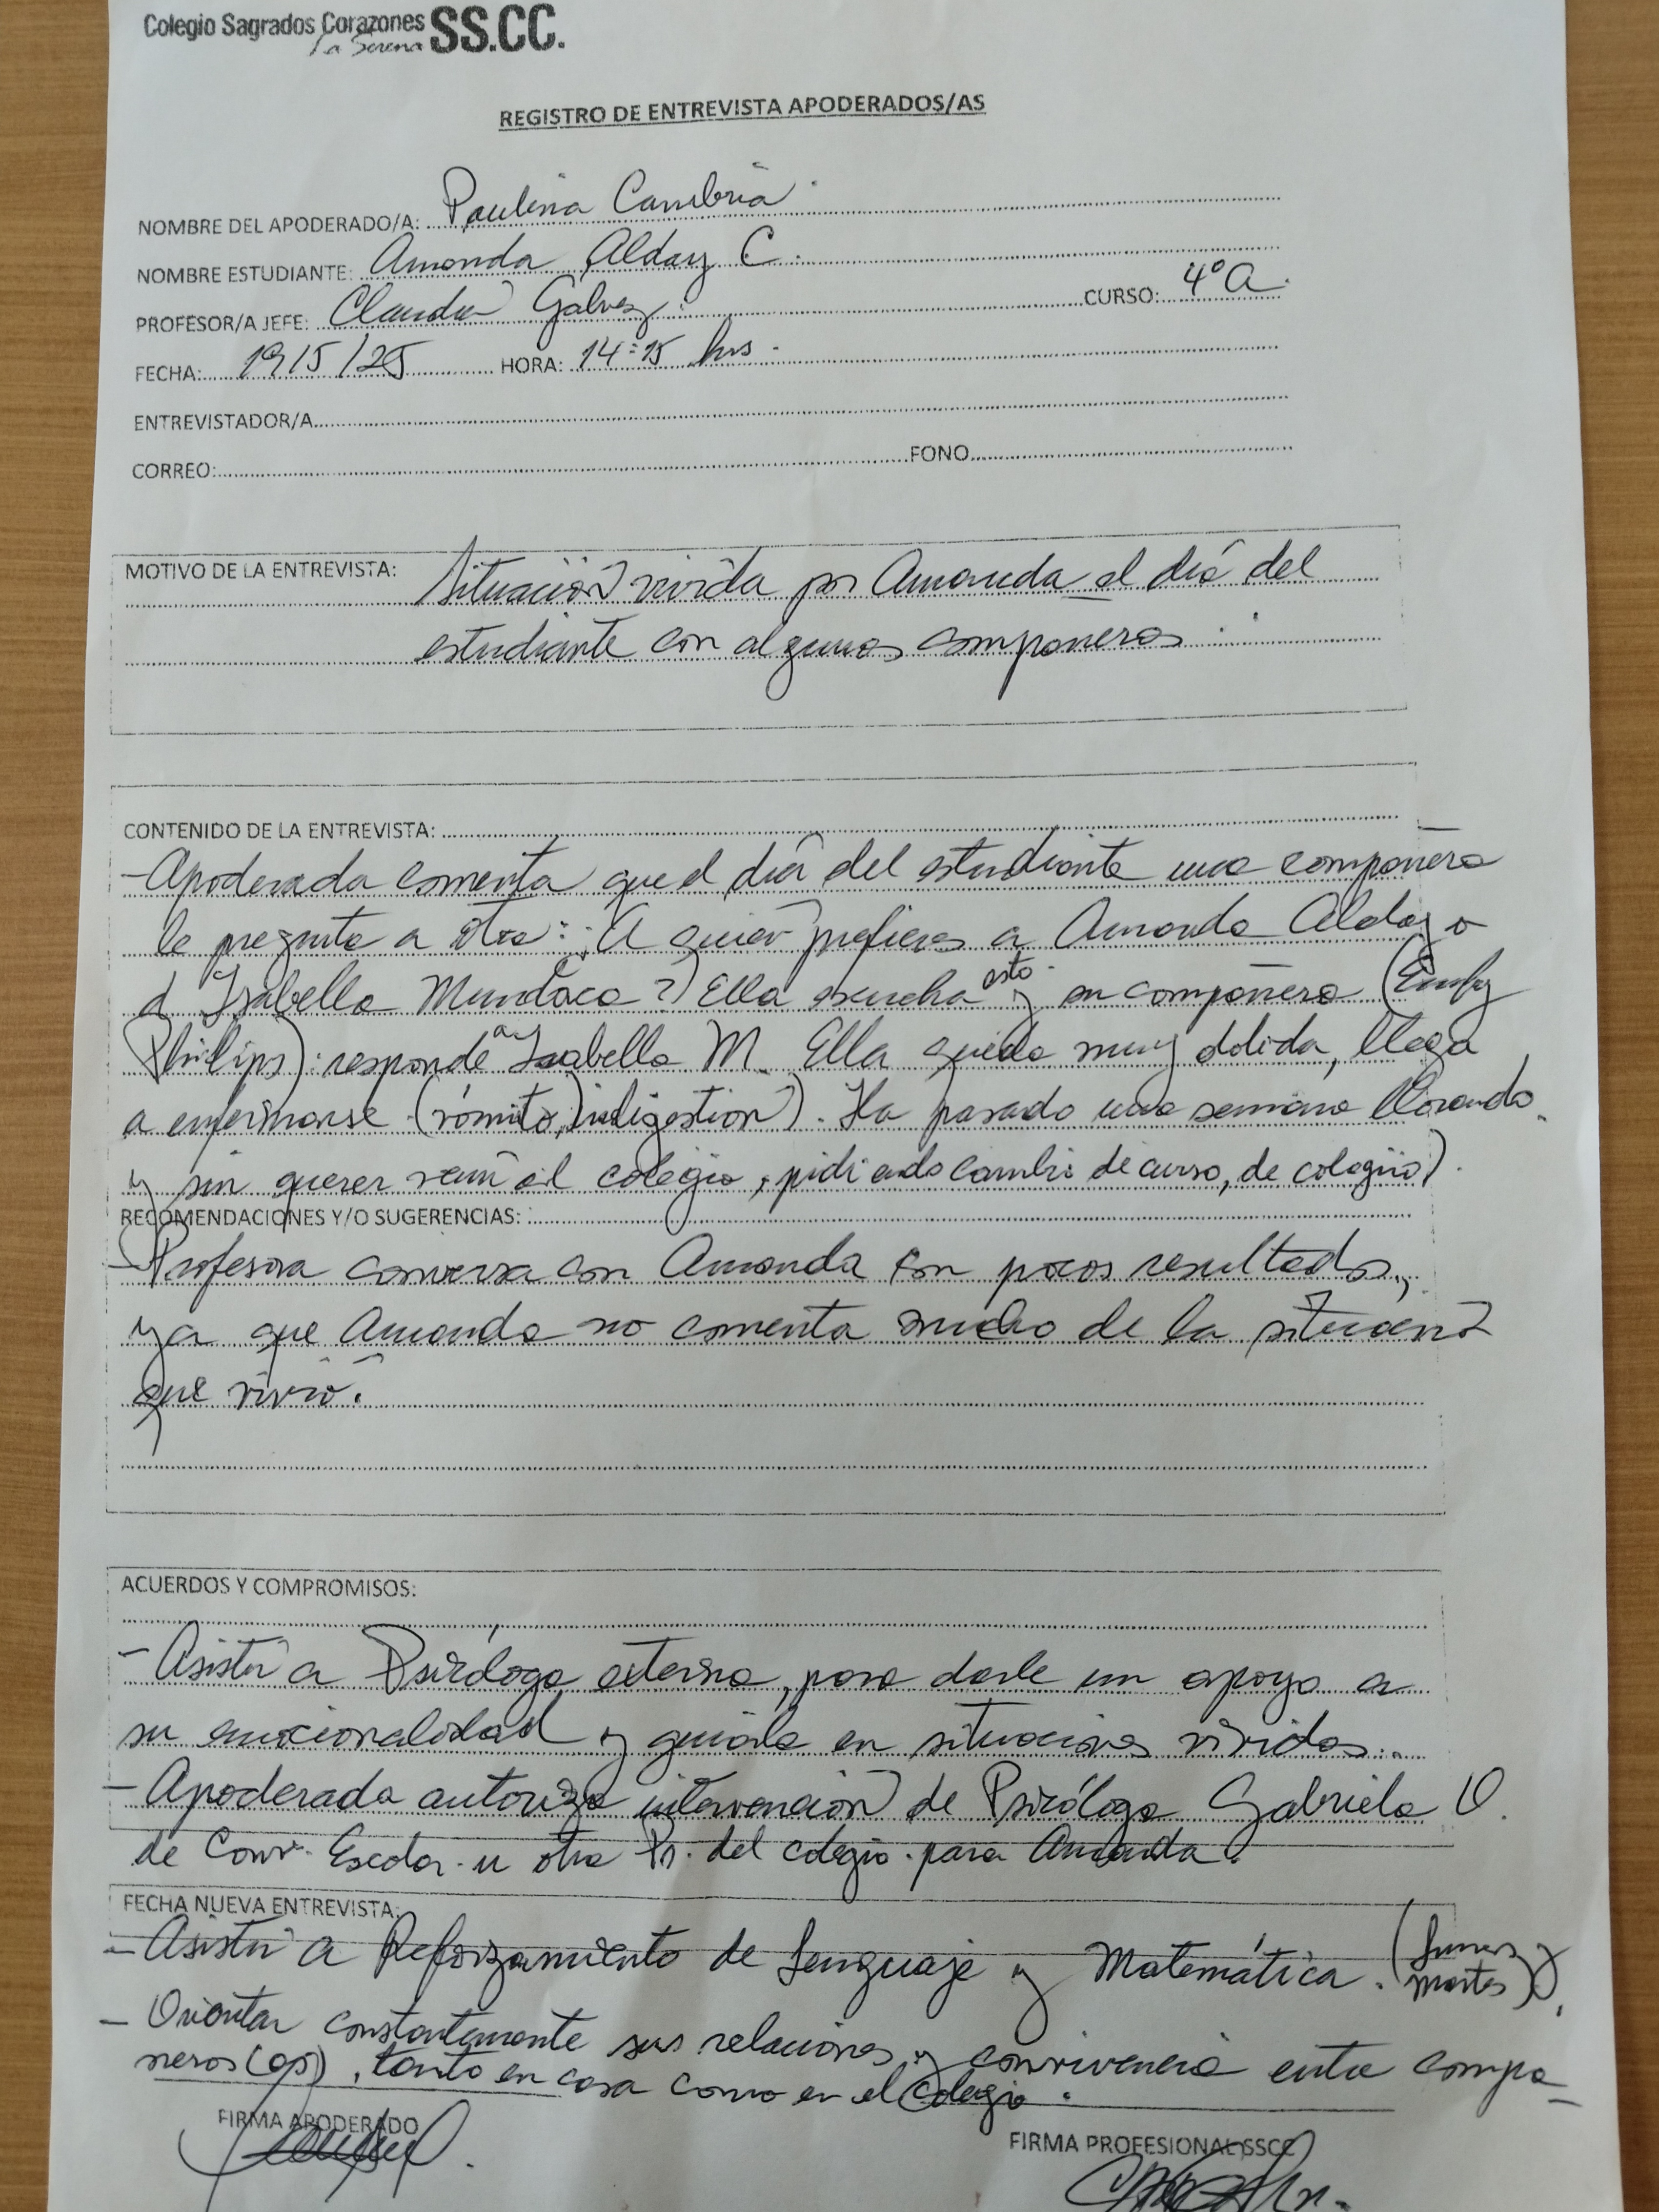 Colegio Sagrados Corazones SS.CC.
La Serena
REGISTRO DE ENTREVISTA APODERADOS/AS
NOMBRE DEL APODERADO/A: Paulina Cambria
NOMBRE ESTUDIANTE: Amanda Alday C.
PROFESOR/A JEFE: Claudia Galvez CURSO: 4°A
FECHA: 19/5/25 HORA: 14:15 hrs.
ENTREVISTADOR/A
CORREO: FONO
MOTIVO DE LA ENTREVISTA: Situación vivida por Amanda el día del
estudiante con algunos compañeros.
CONTENIDO DE LA ENTREVISTA:
- Apoderada comenta que el día del estudiante una compañera
le pregunta a otra: ¿A quién prefieres a Amanda Alday o
a Isabella Mundaca? Ella escucha esto y su compañera (Emily
Philips): responde a Isabella M. Ella queda muy dolida, llega
a enfermarse (vómito, indigestión). Ha pasado una semana llorando
y sin querer venir al colegio, pidiendo cambio de curso, de colegio).
RECOMENDACIONES Y/O SUGERENCIAS:
- Profesora conversa con Amanda con pocos resultados,
ya que Amanda no comenta mucho de la situación
que vivió.
ACUERDOS Y COMPROMISOS:
- Asistir a Psicóloga externa, para darle un apoyo a
su emocionalidad y guiarla en situaciones vividas.
- Apoderada autoriza intervención de Psicóloga Gabriela O.
de Conv. Escolar u otra Ps. del colegio para Amanda.
FECHA NUEVA ENTREVISTA:
- Asistir a Reforzamiento de Lenguaje y Matemática. (lunes y
martes).
- Orientar constantemente sus relaciones y convivencia entre compa-
ñeros(as), tanto en casa como en el Colegio.
FIRMA APODERADO
FIRMA PROFESIONAL SSCC